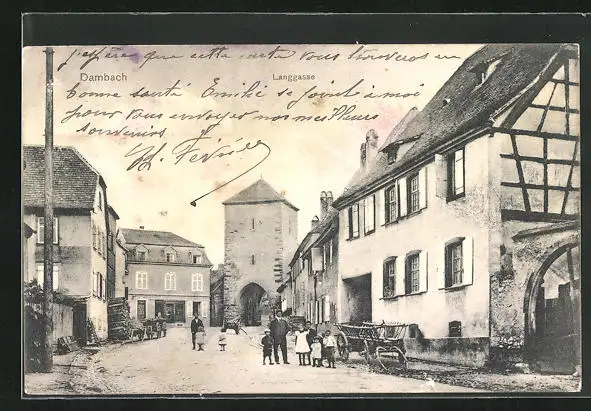 j'espère que cette carte vous trouvera en
Dambach
Langgasse
bonne santé Emilie se joint à moi
pour vous envoyer nos meilleurs
souvenirs